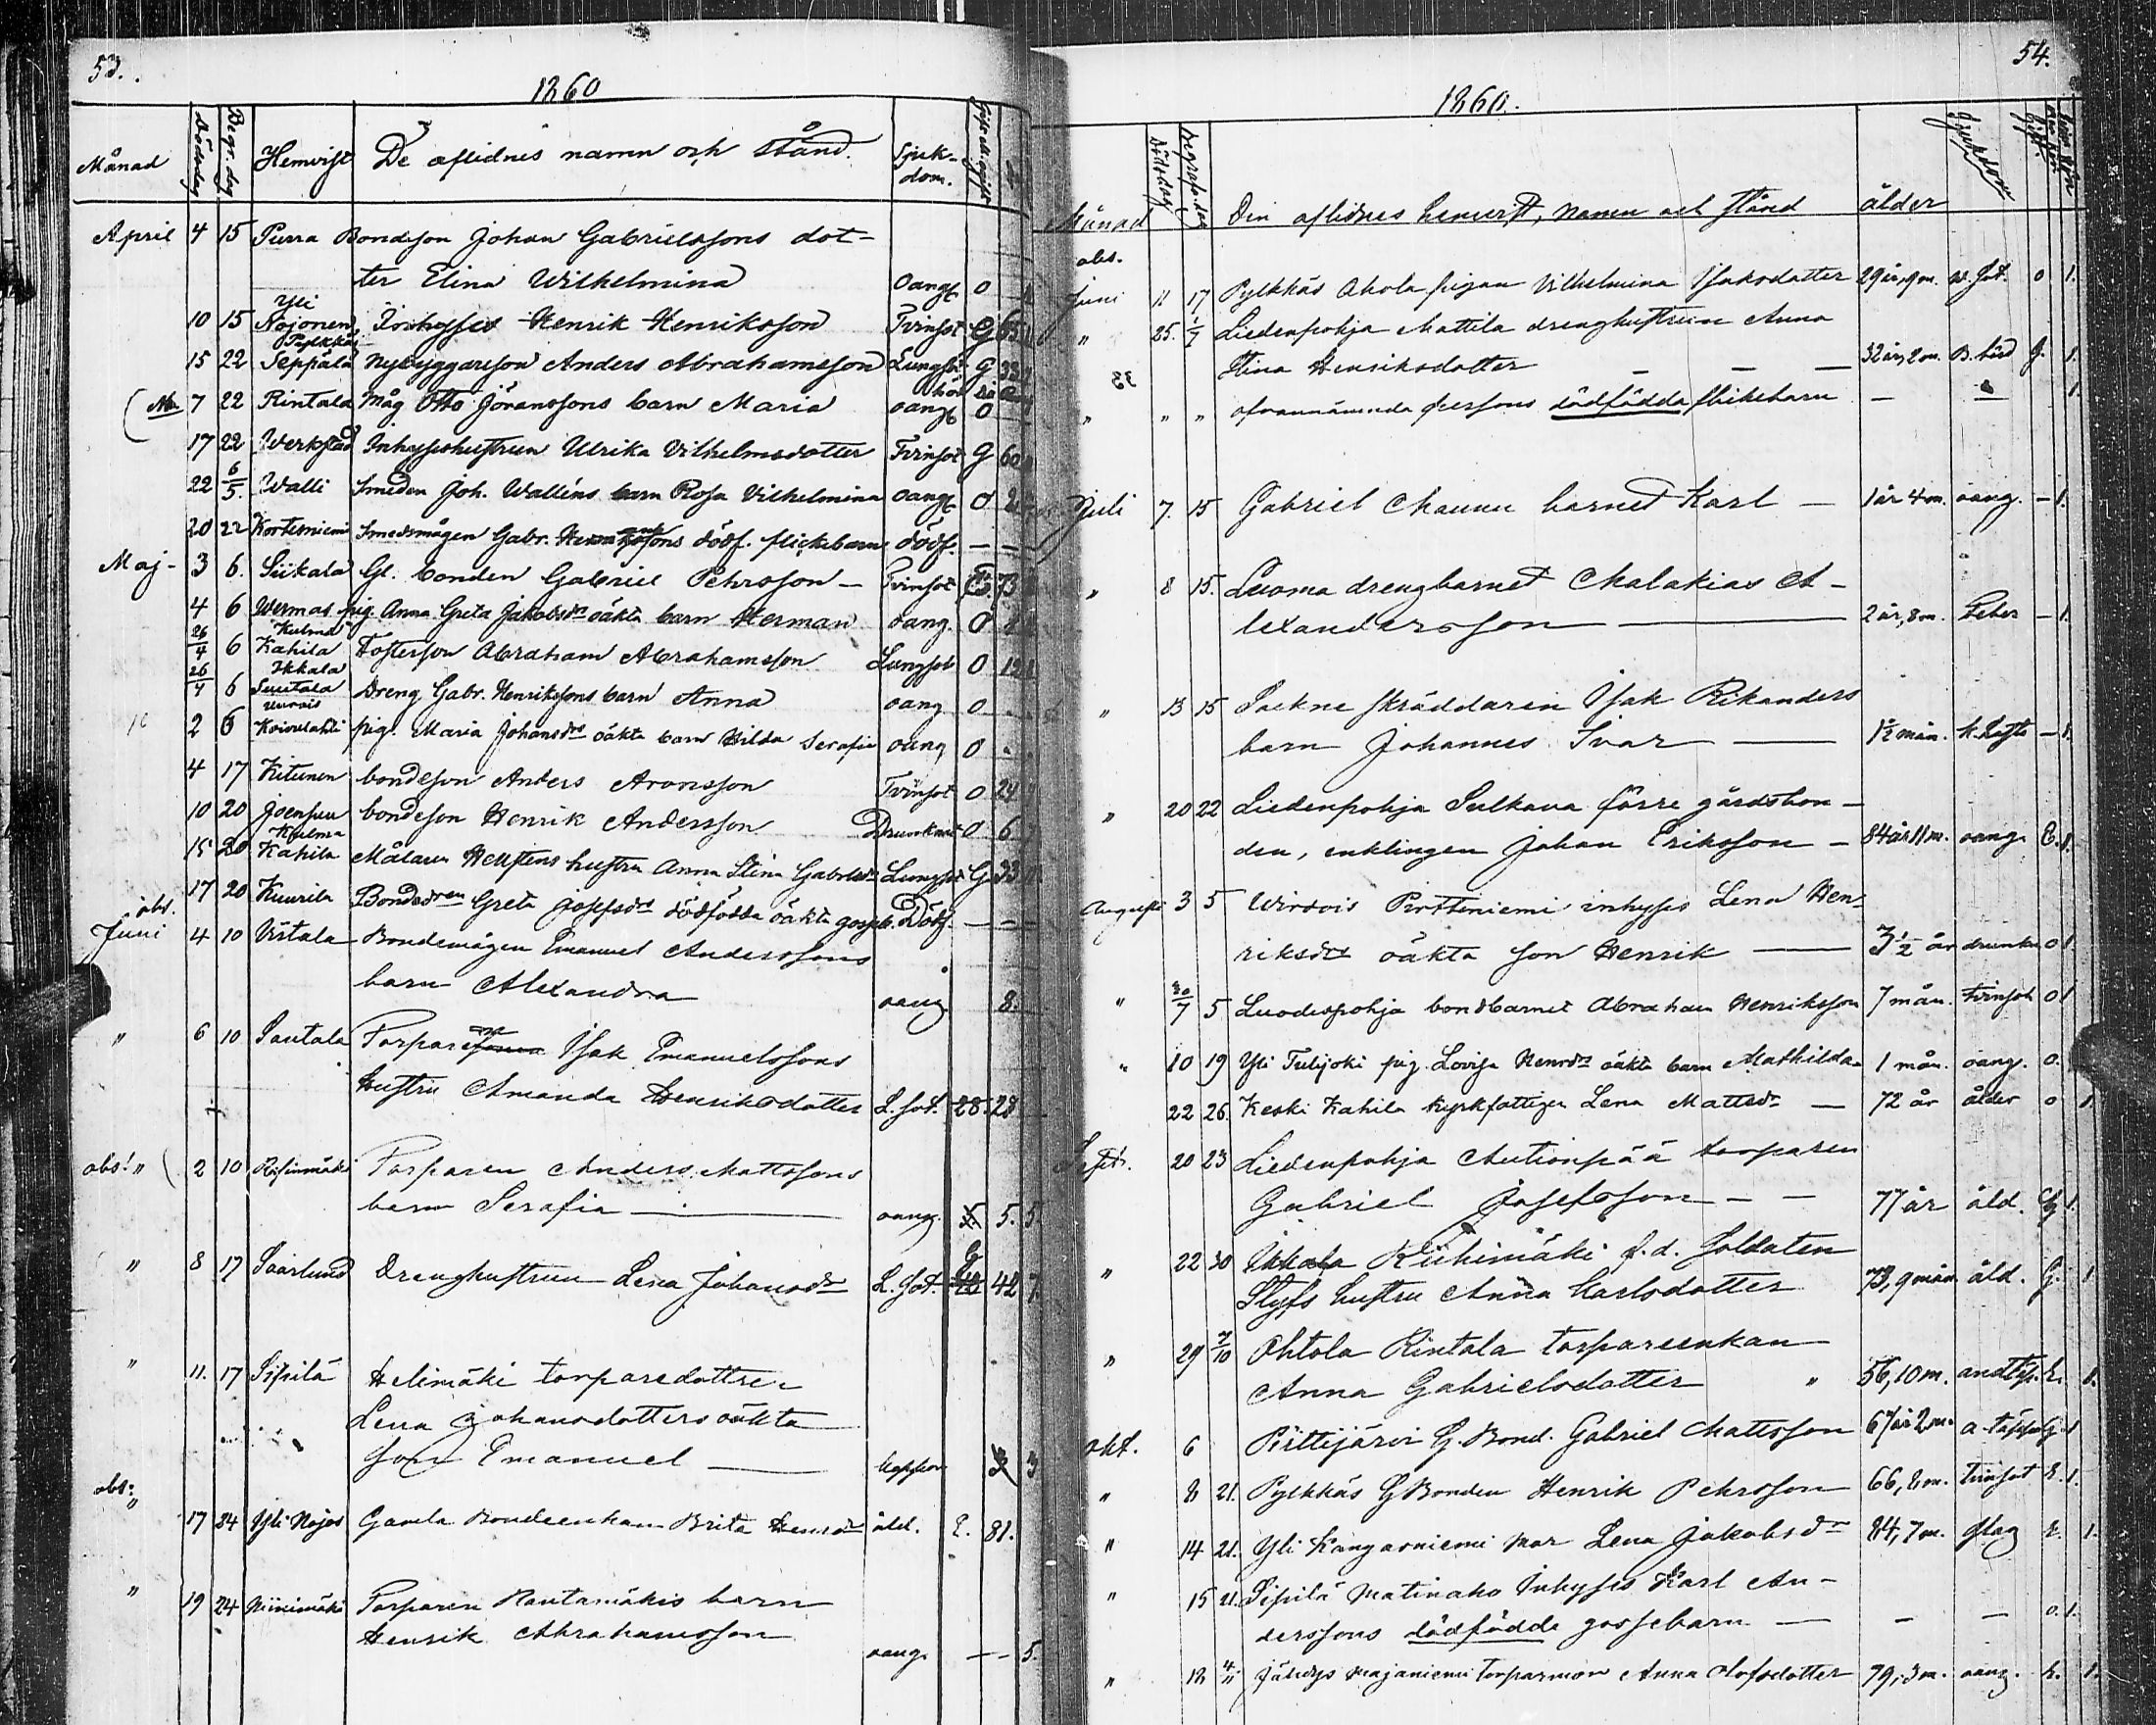 53.
1860
Månad Dödsdag Begr. dag Hemvist De aflidnes namn och stånd. Sjuk-
dom.
April 4 15 Purra Bondeson Johan Gabrielssons dot-
ter Elina Wilhelmina oang 0
Yli
10 15 Nojonen Inhyses Henrik Henriksson Tvinsot G 65
Pylkkäs
15 22 Seppälä Nybyggareson Anders Abrahamsson Lungsot G 33
7 22 Rintala Måg Otto Jöranssons barn Maria oang 0
17 22 Werkstad Inhyseshustrun Ulrika Vilhelmsdotter Tvinsot G 60
22 6/5. Walli Smeden Joh. Walléns barn Rosa Vilhelmina oang 0
20 22 Kortesniemi Smedsmågen Gabr. dödf. flickebarn dödf. — —
Maj - 3 6. Siikala Gl. bonden Gabriel Pehrsson — Tvinsot 73
4 6 Wermas pig. Anna Greta Jakobsdr oäkta barn Herman oang. 0
Kulma
26/4 6 Kahila Fosterson Abraham Abrahamsson Lungsot 0 12
Ikkala
26/4 6 Suutala Dreng Gabr. Henrikssons barn Anna oang 0
2 6 Koivulahti pig. Maria Johansdr oäkta barn Hilda Serafia oang 0
4 17 Kitunen bondeson Anders Aronsson Tvinsot 0 24
10 20 Joensuu bondeson Henrik Andersson Drunknat 0 6
Kulma
15 20 Kahila Målaren Hellstens hustru Anna Stina Gabrielsdr Lungsot G 33
17 20 Kuurila Bondedren Greta Josefsdr dödfödda oäkta gosseb. Dödf. — —
obs.
Juni 4 10 Uistala Bondemågen Emanuel Anderssons
barn Alexandra oang 8.
" 6 10 Sautala Torparen Isak Emanuelssons
hustru Amanda Henriksdotter L. sot. 28. 28
obs! " 2 10 Risinmäki Torparen Anders Mattssons
barn Serafia — oang. 5. 5. 5.
" 8 17 Saarlund Drenghustrun Lena Johansdr L. sot. G 42 7.
" 11. 17 Sipilä Helimäki torparedottren
Lena Johansdotters oäkta
son Emanuel — koppor 3
obs:
" 17 24 Yli Nojos Gamla Bondeenkan Brita Henrsdr åld. E. 81.
" 19 24 Niinimäki Torparen Rautamäkis barn
Henrik Abrahamsson oang. — — 5.
54.
1860.
Månad Dödsdag Begrafn. dag Den aflidnes hemvist, namn och stånd ålder Sjukdom
obs.
Juni 11 17 Pylkkäs Ahola pigan Vilhelmina Isaksdotter 29 år, 9 m. 0 1.
" 25. 1/7 Liedenpohja Mattila drenghustrun Anna
Stina Henriksdotter — — — 32 år, 2 m. B. börd G. 1.
" " " ofvannämnda persons dödfödda flickebarn — — 1.
Juli 7. 15 Gabriel Maunu barnet Karl — 1 år 4 m. oang. — 1.
" 8 15. Luoma drengbarnet Malakias A-
lexandersson — 2 år, 8 m. Feber — 1.
" 13 15 Sockne skräddaren Isak Rikanders
barn Johannes Ivar — 1½ mån. k. hosta — 1.
" 20 22 Liedenpohja Sulkava förre gårdsbon-
den, enklingen Johan Eriksson — 84 år 11 m. oang. E. 1.
Augusti 3 5 Wirdois Pirttiniemi inhyses Lena Hen-
riksdrs oäkta son Henrik — 3½ år drunkn. 0 1.
" 30/7 5 Luodespohja bondbarnet Abraham Henriksson 7 mån. tvinsot 0 1
" 10 19 Yli Tulijoki pig. Lovisa Henrsdrs oäkta barn Mathilda 1 mån. oang. 0.
22 26. Keski Kahila kyrkfattigen Lena Mattsdr — 72 år ålder 0 1.
Septr. 20 23 Liedenpohja Autionpää torparen
Gabriel Josefsson — — 77 år åld. G 1.
" 22 30 Ikkala Riihimäki f. d. Soldaten
Slyfs hustru Anna Karlsdotter 73, 9 mån åld. G. 1.
" 29 7/10 Ohtola Rintala torpareenkan
Anna Gabrielsdotter " 56, 10 m. andtäp. E. 1.
Okt. 6 Pirttijärvi G. Bond. Gabriel Mattsson 67 år 2 m. a. täppa G 1
" 8 21. Pylkkäs G Bonden Henrik Pehrsson 66, 8 m. tvinsot E. 1.
" 14 21. Yli Kangasniemi Mor Lena Jakobsdr 84, 7 m. slag E. 1.
" 15 21. Sipilä Matinaho Inhyses Karl An-
derssons dödfödda gossebarn — — — 0. 1.
" 18 4/11 Jähdys Majaniemi Torparmor Anna Olofsdotter 79, 3 m. oang. E. 1.